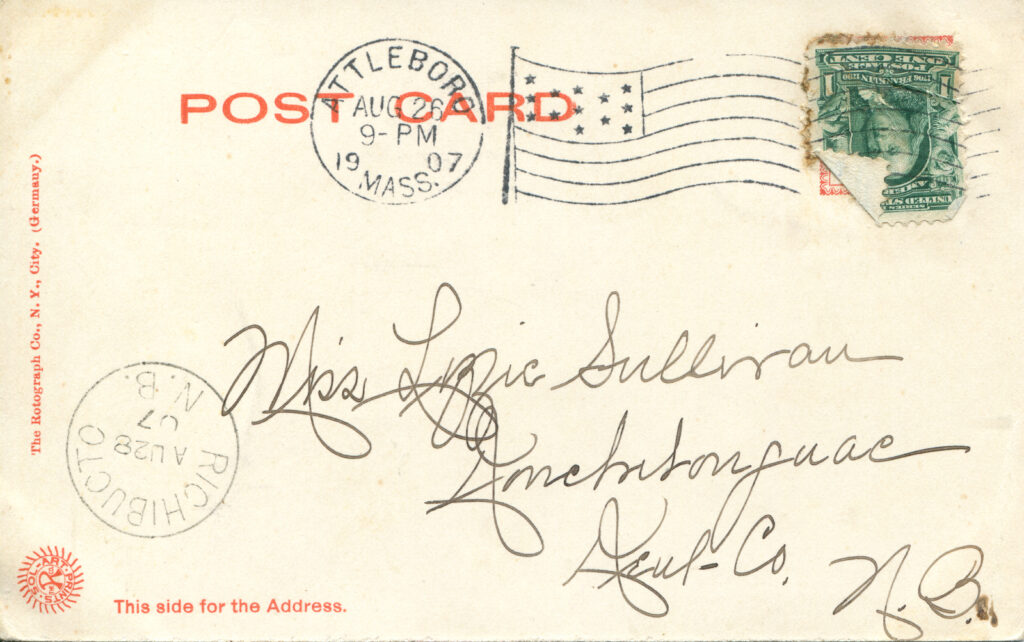 POST CARD
ATTLEBORO
AUG 26
9-PM
19 07
MASS.
ONE CENT
POSTAGE
1706 FRANKLIN 1790
1
SERIES
UNITED ST
AMER
The Rotograph Co., N. Y., City. (Germany.)
Miss Lizzie Sullivan
Kent-Co.
N.B.
RICHIBUCTO
AU 28
07
N.B.
SOL-ART PRINTS
This side for the Address.